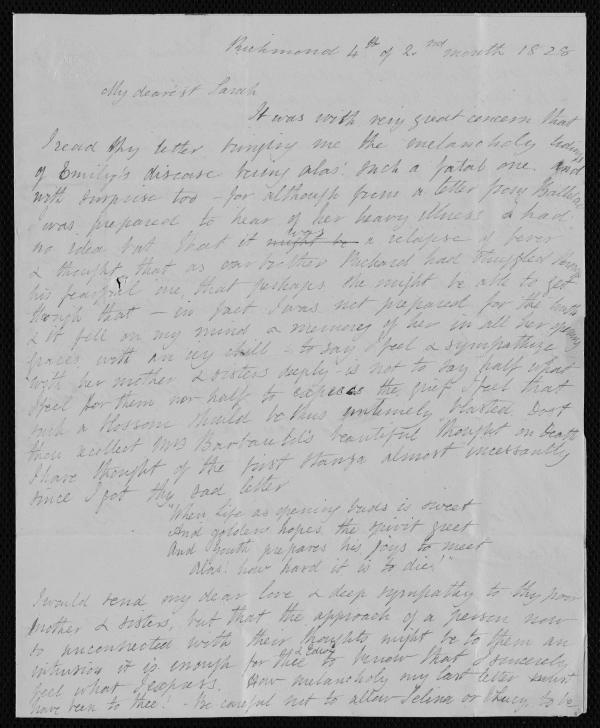 Richmond 4th of 2nd month 1828
My dearest Sarah
It was with very great concern that
I read thy letter bringing me the melancholy tidings
of Emily's disease being alas! such a fatal one. and
with surprise too - for although from a letter from
I was prepared to hear of her heavy illness I had
no idea but that it might be was a relapse of fever
& thought that as our brother Richard had struggled through
his fearful one, that perhaps she might be able to get
though that - in fact I was not prepared for the truth
& it fell on my mind a memory of her in all her opening
graces with an icy chill - to say I feel & sympathize
with her mother & sisters deeply is not to say half what
I feel for them nor half to express the grief I feel that
such a blossom should be thus untimely blasted, dost
thou recollect Mrs Barbauld's beautiful thought on death
I have thought of the first stanza almost incessantly
since I got thy sad letter
"When Life as opening buds is sweet
And golden hopes the spirit greet
And youth prepares his joys to meet
Alas! how hard it is to die!"
I would send my dear love & deep sympathy to thy poor
mother & sisters, but that the approach of a person now
so unconnected with their thoughts might be to them an
intrusion it is enough for thee & to know that I sincerely
feel what I express. How melancholy my last letter must
have been to thee! - be careful not to allow Selina or Lucy to be